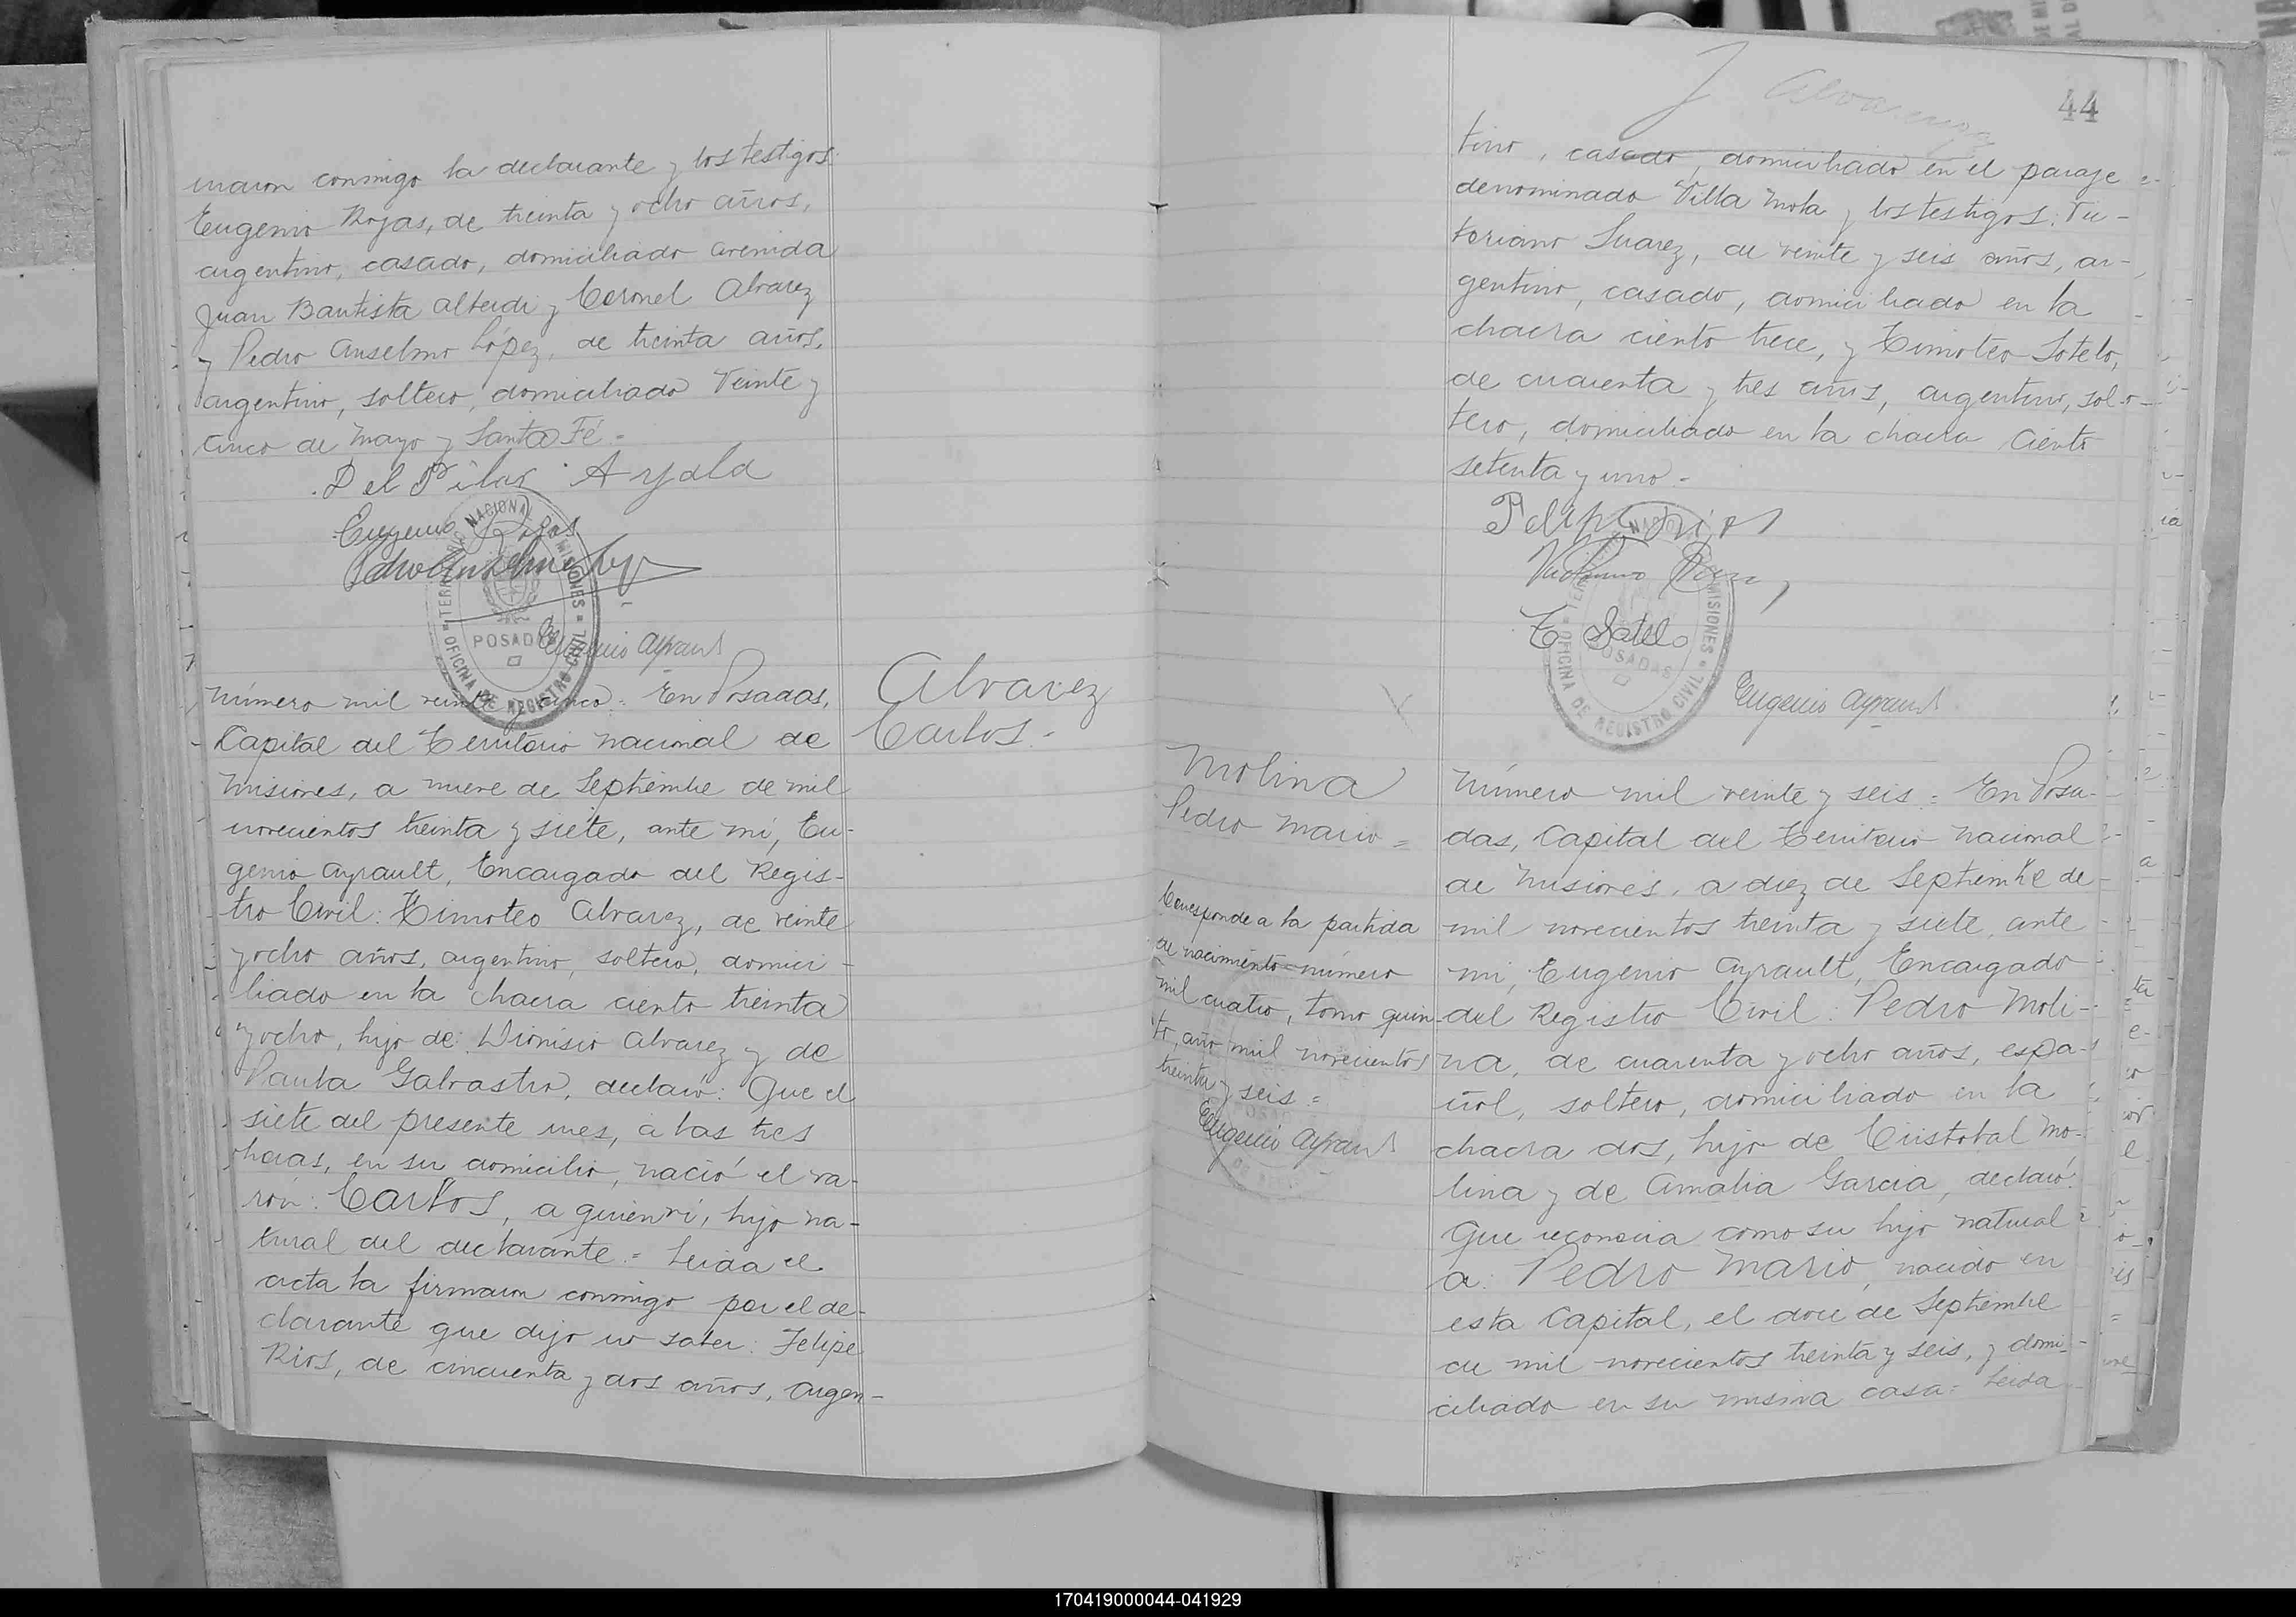 maron conmigo la declarante y los testigos:
Eugenio Rojas, de treinta y ocho años,
argentino, casado, domiciliado avenida
Juan Bautista Alberdi y Coronel Alvarez
y Pedro Anselmo López, de treinta años,
argentino, soltero, domiciliado Veinte y
cinco de Mayo y Santa Fé.=
Del Pilar Ayala
Eugenio Rojas
Pedro Anselmo
TERRITORIO NACIONAL MISIONES
POSADAS
= OFICINA DE REGISTRO CIVIL =
Eugenio Ayrault
Número mil veinte y cinco = En Posadas,
Capital del Territorio Nacional de
Misiones, a nueve de Septiembre de mil
novecientos treinta y siete, ante mí, Eu-
genio Ayrault, Encargado del Regis-
tro Civil: Timoteo Alvarez, de veinte
y ocho años, argentino, soltero, domici-
liado en la chacra ciento treinta
y ocho, hijo de: Dionisio Alvarez y de
Paula Galvastro, declaró: Que el
siete del presente mes, a las tres
horas, en su domicilio, nació el va-
rón: Carlos, a quien ví, hijo na-
tural del declarante.= Leida el
acta la firmaron conmigo por el de-
clarante que dijo no saber: Felipe
Rios, de cincuenta y dos años, argen-
Alvarez
Carlos.-
44
tino, casado, domiciliado en el paraje
denominado Villa Mola y los testigos: Vic-
toriano Suarez, de veinte y seis años, ar-
gentino, casado, domiciliado en la
chacra ciento trece, y Timoteo Sotelo,
de cuarenta y tres años, argentino, sol-
tero, domiciliado en la chacra ciento
setenta y uno.-
T Sotelo
POSADAS
MISIONES = OFICINA DE REGISTRO CIVIL
Eugenio Ayrault
Molina
Pedro Mario =
Corresponde a la partida
de nacimiento número
mil cuatro, tomo quin-
to, año mil novecientos
treinta y seis =
Eugenio Ayrault
Número mil veinte y seis = En Posa-
das, Capital del Territorio Nacional
de Misiones, a diez de Septiembre de
mil novecientos treinta y siete, ante
mí, Eugenio Ayrault, Encargado
del Registro Civil: Pedro Moli-
na, de cuarenta y ocho años, espa-
ñol, soltero, domiciliado en la
chacra dos, hijo de Cristobal Mo-
lina y de Amalia Garcia, declaró:
Que reconocia como su hijo natural
a: Pedro Mario, nacido en
esta Capital, el doce de Septiembre
de mil novecientos treinta y seis, y domi-
ciliado en su misma casa = Leida
170419000044-041929